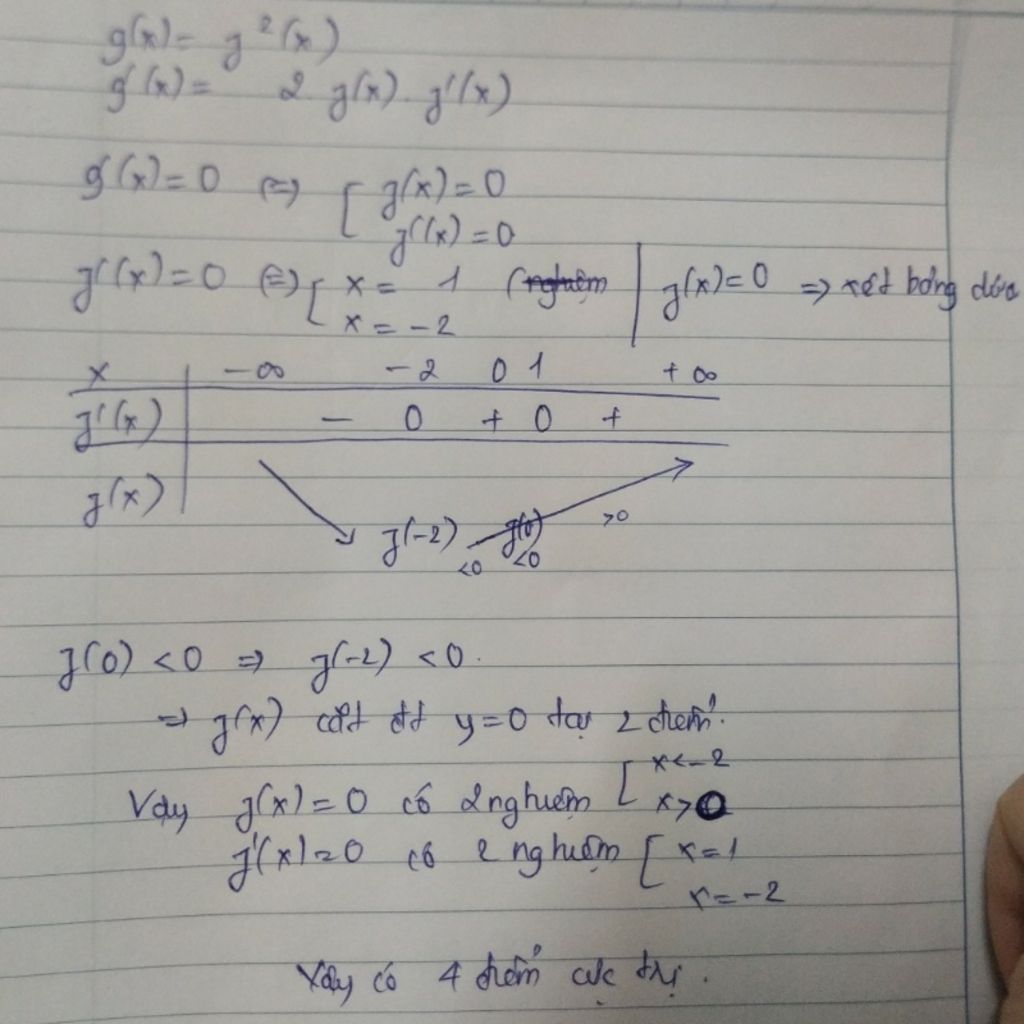 g(x) = f²(x)
g'(x) = 2 f(x). f'(x)
g'(x) = 0 ⇔ [ f(x) = 0
f'(x) = 0
f'(x) = 0 ⇔ [ x = 1 (nghiệm | f(x) = 0 ⇒ xét bảng dưới
x = -2
x | -∞ -2 0 1 +∞
f'(x) | - 0 + 0 +
f(x) | f(-2) <0 f(0) <0 >0
f(0) < 0 ⇒ f(-2) < 0.
⇒ f(x) cắt đt y = 0 tại 2 điểm.
Vậy f(x) = 0 có 2 nghiệm [ x < -2
x > 0
f'(x) = 0 có 2 nghiệm [ x = 1
x = -2
Vậy có 4 điểm cực trị.